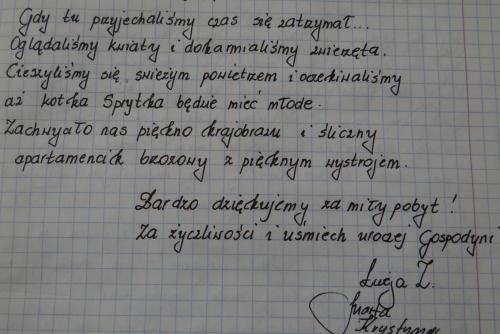 Gdy tu przyjechaliśmy czas się zatrzymał...
Oglądaliśmy kwiaty i dokarmialiśmy zwierzęta.
Cieszyliśmy się świeżym powietrzem i oczekiwaliśmy
aż kotka Sprytka będzie mieć młode.
Zachwyało nas piękno krajobrazu i śliczny
apartamencik brzozowy z pięknym wystrojem.
Bardzo dziękujemy za miły pobyt!
Za życzliwości i uśmiech uroczej Gospodyni
Łucja Z.
Marta